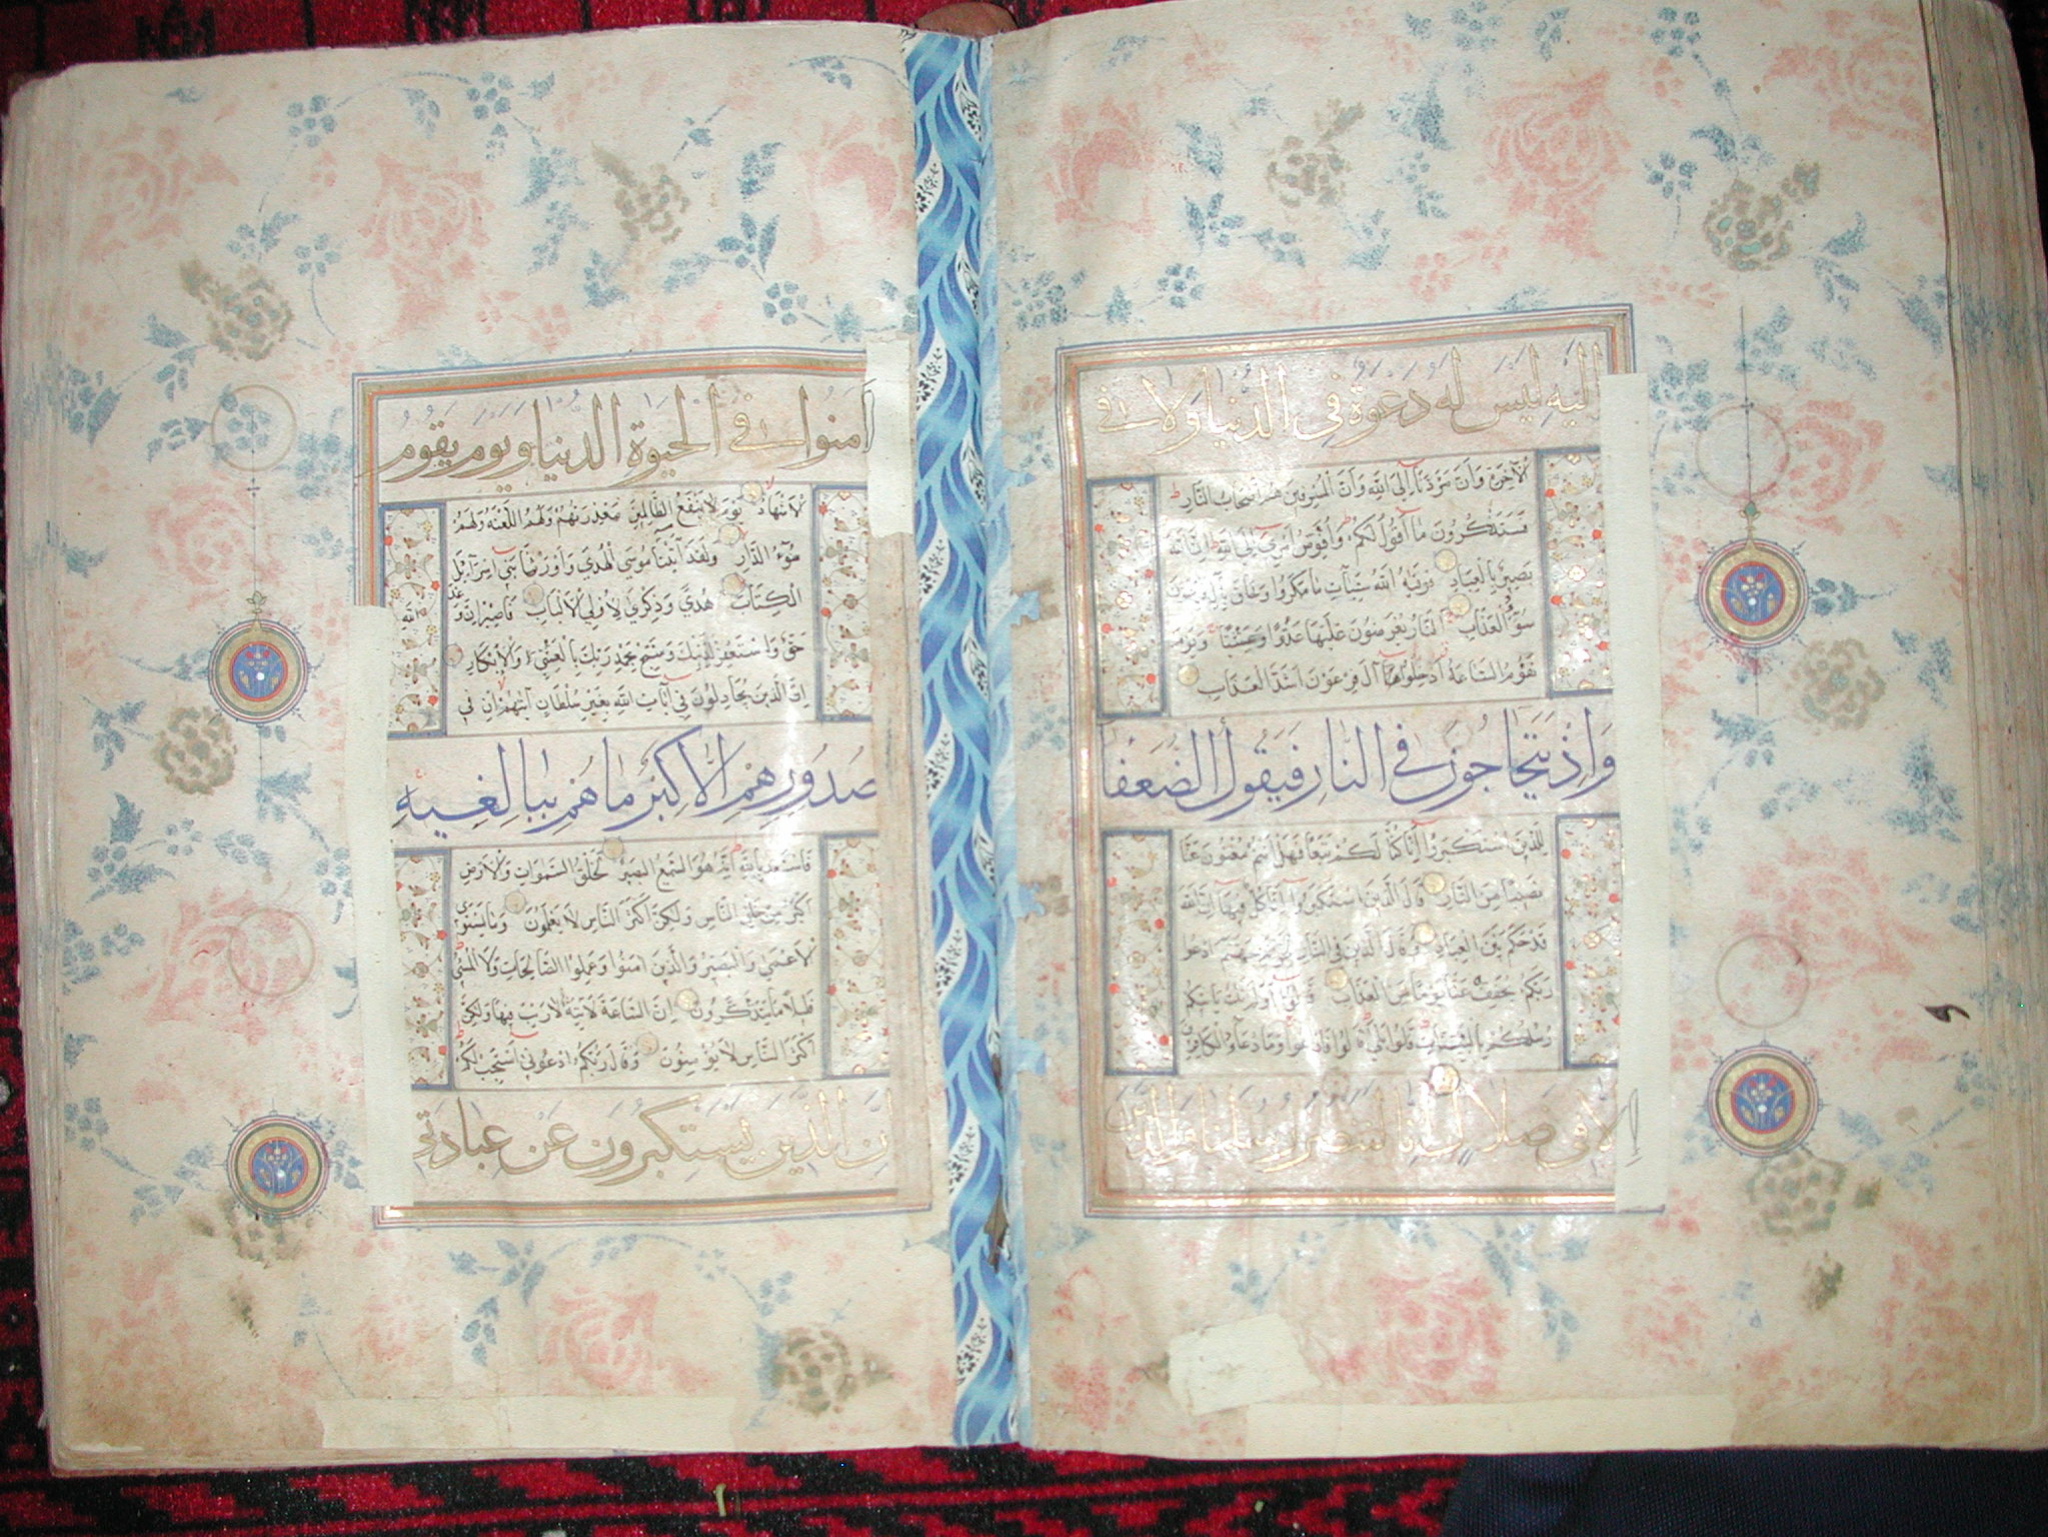 إليه ليس له دعوة في الدنيا ولا في
الآخرة وأن مردنا إلى الله وأن المسرفين هم أصحاب النار
فستذكرون ما أقول لكم وأفوض أمري إلى الله إن الله
بصير بالعباد فوقيه الله سيئات ما مكروا وحاق بآل فرعون
سوء العذاب النار يعرضون عليها غدوا وعشيا ويوم
تقوم الساعة أدخلوا آل فرعون أشد العذاب
وإذ يتحاجون في النار فيقول الضعفا
للذين استكبروا إنا كنا لكم تبعا فهل أنتم مغنون عنا
نصيبا من النار قال الذين استكبروا إنا كل فيها إن الله
قد حكم بين العباد وقال الذين في النار لخزنة جهنم ادعوا
ربكم يخفف عنا يوما من العذاب قالوا أولم تك تأتيكم
رسلكم بالبينات قالوا بلى قالوا فادعوا وما دعاؤ الكافرين
إلا في ضلال إنا لننصر رسلنا والذين
آمنوا في الحيوة الدنيا ويوم يقوم
الأشهاد يوم لا ينفع الظالمين معذرتهم ولهم اللعنة ولهم
سوء الدار ولقد آتينا موسى الهدى وأورثنا بني إسرآئيل
الكتاب هدى وذكرى لأولي الألباب فاصبر إن وعد الله
حق واستغفر لذنبك وسبح بحمد ربك بالعشي والإبكار
إن الذين يجادلون في آيات الله بغير سلطان أتيهم إن في
صدورهم إلا كبر ما هم ببالغيه
فاستعذ بالله إنه هو السميع البصير لخلق السموات والأرض
أكبر من خلق الناس ولكن أكثر الناس لا يعلمون وما يستوي
الأعمى والبصير والذين آمنوا وعملوا الصالحات ولا المسيء
قليلا ما يتذكرون إن الساعة لآتية لا ريب فيها ولكن
أكثر الناس لا يؤمنون وقال ربكم ادعوني أستجب لكم
إن الذين يستكبرون عن عبادتي